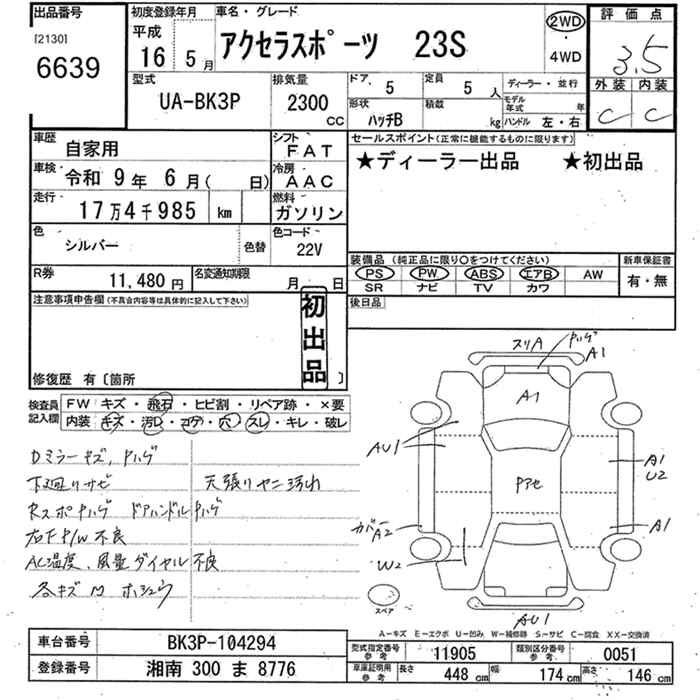 出品番号
[2130]
6639
初度登録年月
平成
16 5 月
車名・グレード
アクセラスポーツ 23S
2WD
4WD
評価点
3.5
外装 内装
C C
型式
UA-BK3P
排気量
2300 CC
ドア 5
定員 5 人
ディーラー・並行
形状 ハッチB
積載 kg
モデル年式 年
ハンドル 左・右
車歴 自家用
シフト FAT
車検 令和 9年 6月( 日)
冷房 AAC
走行 17万4千985 km
燃料 ガソリン
色 シルバー 色替
色コード 22V
R券 11,480 円
名変通知期限 月 日
セールスポイント(正常に機能するものに限ります)
★ディーラー出品 ★初出品
装備品 (純正品に限り〇をつけてください)
PS PW ABS エアB AW
SR ナビ TV カワ
新車保証書
有・無
後日品
注意事項申告欄(不具合内容等は具体的に記入して下さい)
初出品
修復歴 有〔箇所 〕
検査員記入欄
FW キズ・飛石・ヒビ割・リペア跡・×要
内装 キズ・汚レ・コゲ・穴・スレ・キレ・破レ
Dミラーキズ、ハゲ
下廻リサビ
天張リヤニ汚れ
Rスポハゲ ドアハンドルハゲ
右F P/W 不良
AC温度、風量ダイヤル不良
各キズ凹 ホシュウ
スリA
ハゲ
A1
A1
AU1
Pアセ
A1
U2
カバー
A2
A1
W2
スペア
AU1
A−キズ E−エクボ U−凹み W−補修跡 S−サビ C−腐食 XX−交換済
車台番号 BK3P-104294
登録番号 湘南 300 ま 8776
型式指定番号 参考 11905
類別区分番号 参考 0051
車庫証明用 参考
長さ 448 cm
幅 174 cm
高さ 146 cm